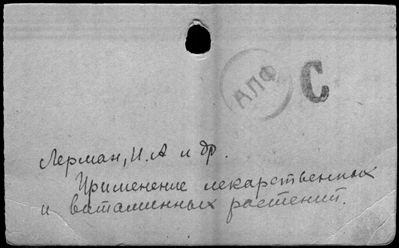 АЛФ
С
Лерман, И.А и др.
Применение лекарственных
и витаминных растений.